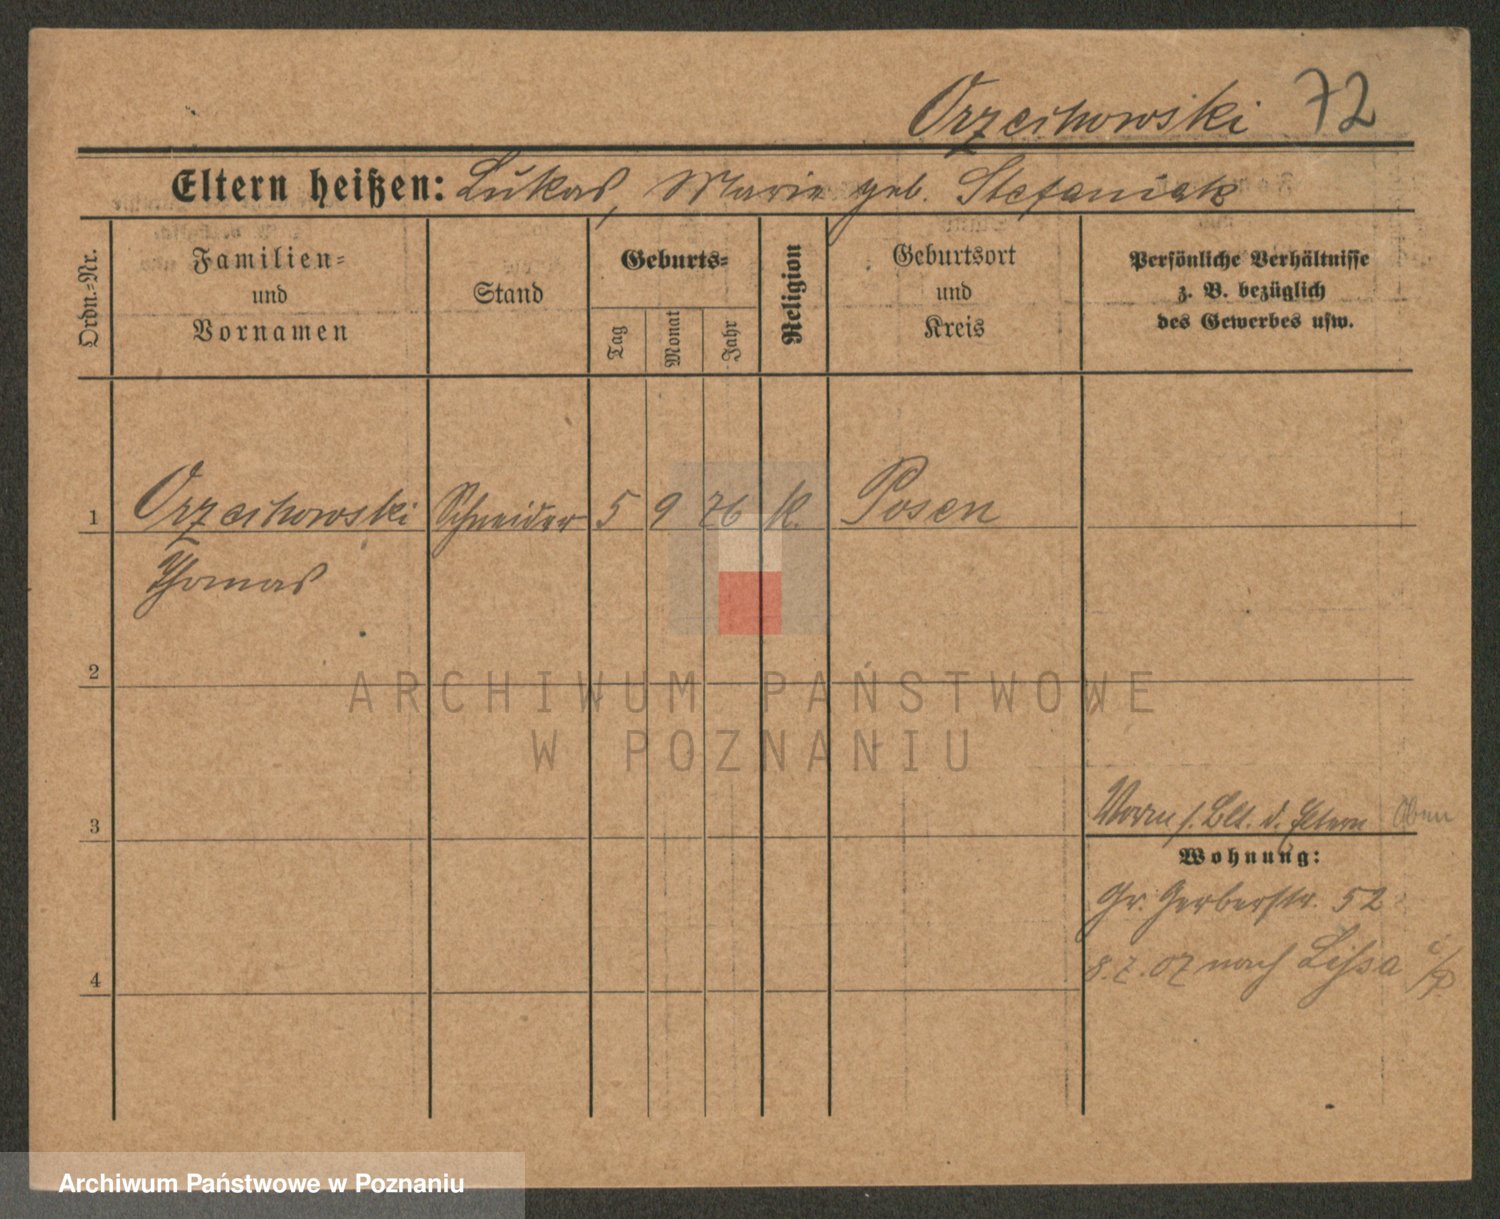 Orzechowski 72
Eltern heißen: Lukas, Marie geb. Stefaniak
Ordn.-Nr.
Familien-
und
Vornamen
Stand
Geburts-
Tag
Monat
Jahr
Religion
Geburtsort
und
Kreis
Persönliche Verhältnisse
z. B. bezüglich
des Gewerbes usw.
1 Orzechowski Schneider 5 9 76 K. Posen
Thomas
2
ARCHIWUM PAŃSTWOWE
W POZNANIU
3
Vorm s. Blt. d. Eltern
Wohnung:
Gr. Gerberstr. 52
8.7.07 nach Lissa i/P
4
Archiwum Państwowe w Poznaniu